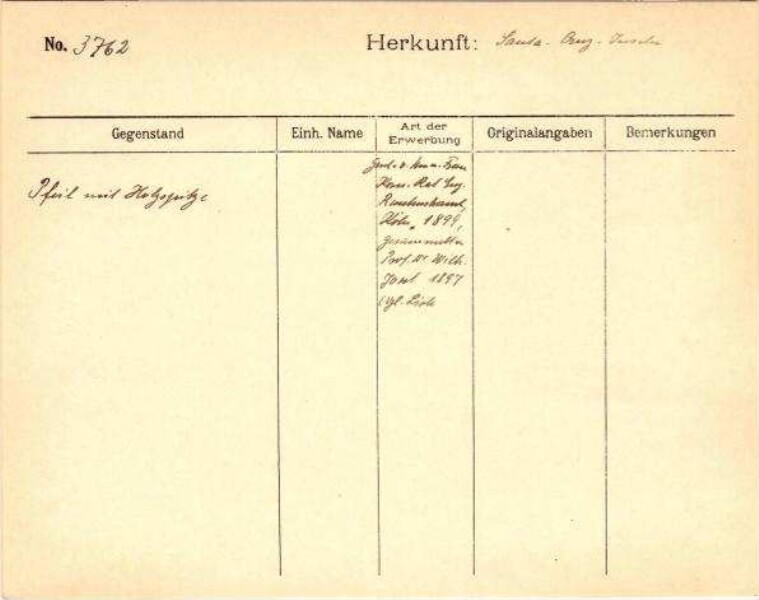 No. 3762
Herkunft: Santa-Cruz-Inseln
Gegenstand
Einh. Name
Art der
Erwerbung
Originalangaben
Bemerkungen
Pfeil mit Holzspitze
Gesch. v. Frau
Kom. Rat Eug.
Rautenstrauch,
Köln, 1899,
gesammelt v.
Prof. Dr. Wilh.
Joest 1897
(vgl. Liste